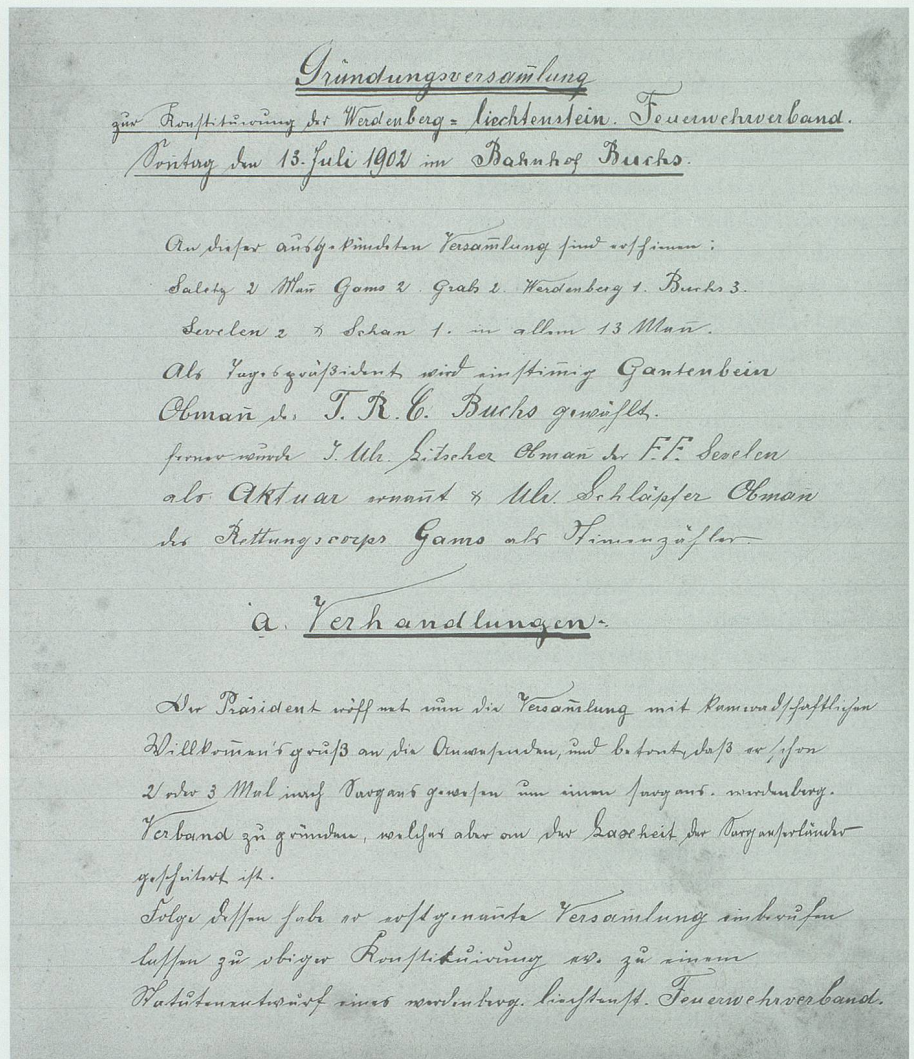 Gründungsversam̅lung
zur Konstituirung des Werdenberg = liechtenstein. Feuerwehrverband.
Son̅tag den 13. Juli 1902 im Bahnhof Buchs.
An dieser ausgekündeten Versam̅lung sind erschienen:
Saletz 2 Man̅ Gams 2 Grabs 2. Werdenberg 1. Buchs 3.
Sevelen 2 & Schan 1. in allem 13 Man̅.
Als Tagespräßident wird einstim̅ig Gantenbein
Obman̅ des T. R. C. Buchs gewählt.
ferner wurde J. Ulr. Litscher Obman̅ der F.F. Sevelen
als Aktuar ernan̅t & Ulr. Schläpfer Obman̅
des Rettungscorps Gams als Stim̅enzähler.
a. Verhandlungen.
Der Präsident eröffnet nun die Versam̅lung mit kameradschaftlichen
Willkom̅ensgruß an die Anwesenden, und betont, daß er schon
2 oder 3 Mal nach Sargans gewesen um einen sargans. werdenberg.
Verband zu gründen, welches aber an der Laxheit der Sarganserländer
gescheitert ist.
Folge dessen habe er erstgenan̅te Versam̅lung einberufen
lassen zu obiger Konstituirung ev. zu einem
Statutenentwurf eines werdenberg. liechtenst. Feuerwehrverband.